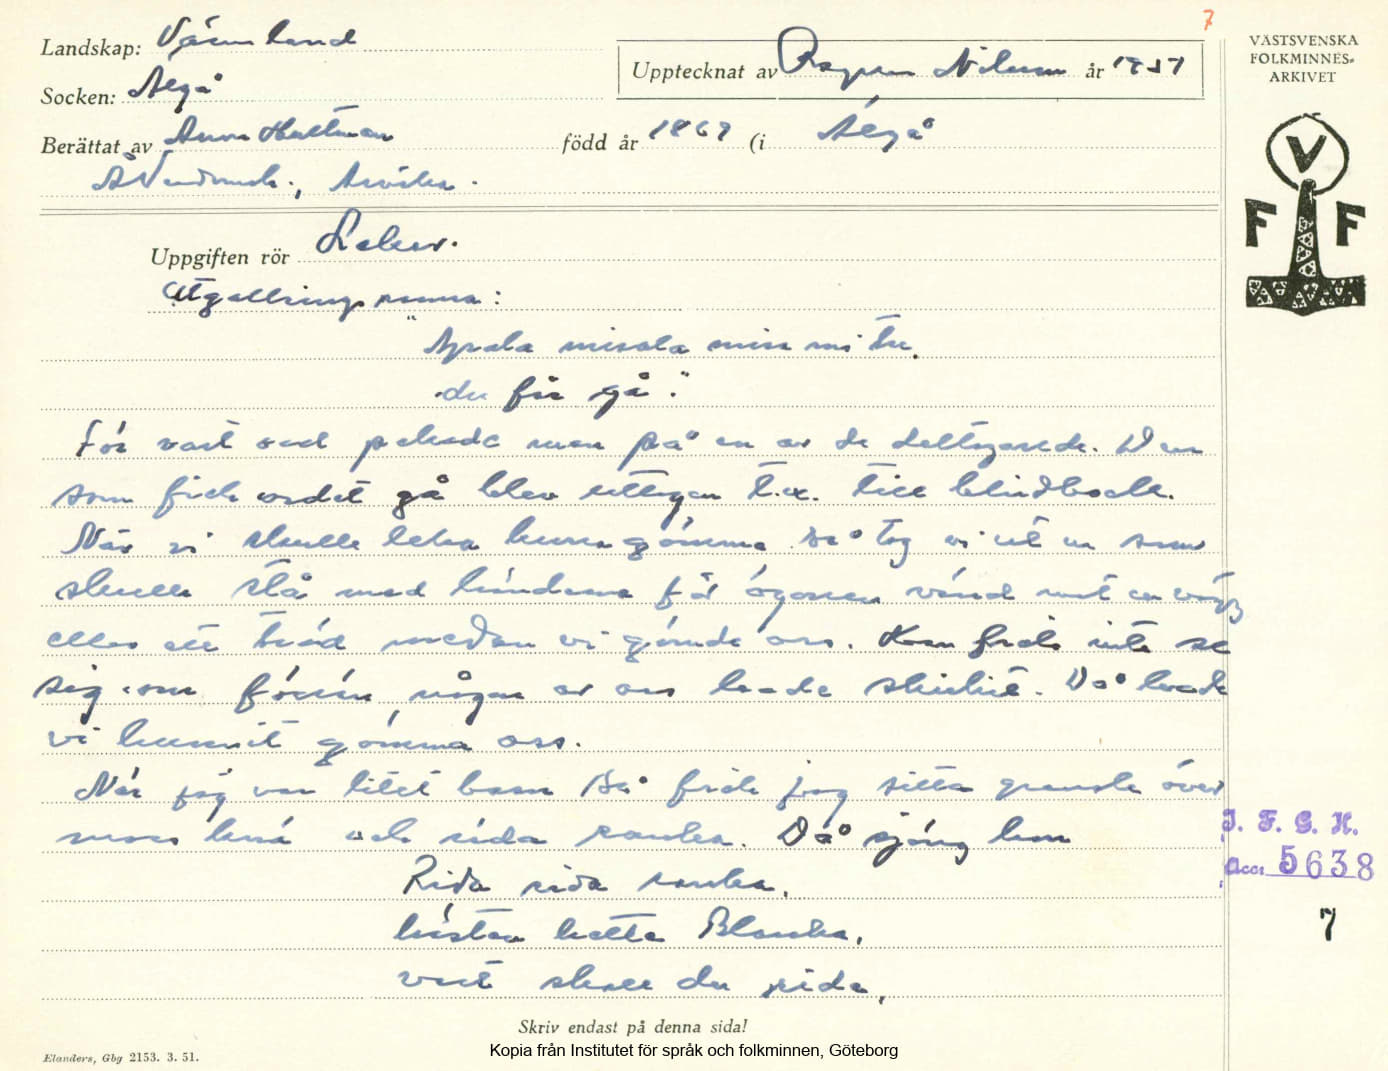 7
Landskap: Värmland
Socken: Älgå
Upptecknat av Ragnar Nilsson år 1957
VÄSTSVENSKA
FOLKMINNES-
ARKIVET
Berättat av Anna Hultman född år 1869 (i Älgå
Arvika.
V
F F
Uppgiften rör Lekar.
Utgallringsramsa:
"Apala misala mi tu
du får gå."
För vart ord pekade man på en av de deltagande. Den
som fick ordet gå blev uttagen t.ex. till blindbock.
När vi skulle leka kurra gömma så tog vi ut en som
skulle stå med händerna för ögonen vänd mot en vägg
eller ett träd medan vi gömde oss. Han fick inte se
sig om förrän någon av oss hade skrikit. Då hade
vi hunnit gömma oss.
När jag var litet barn så fick jag sitta grensle över
mors knä och rida ranka. Då sjöng hon
Rida rida ranka,
hästen hette Blanka,
vart skall du rida,
I. F. G. H.
Acc: 5638
7
Skriv endast på denna sida!
Elanders, Gbg 2153. 3. 51.
Kopia från Institutet för språk och folkminnen, Göteborg